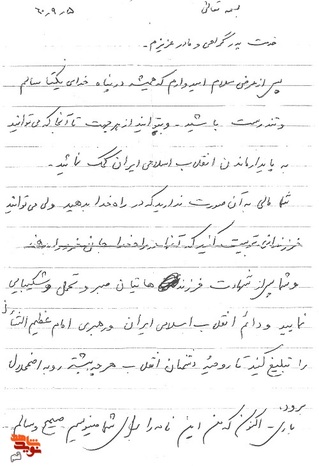 بسمه تعالی
۶۰,۹,۵
خدمت پدر گرامی و مادر عزیزم.
پس از عرض سلام امیدوارم که همیشه در پناه خدای یکتا سالم
و تندرست باشید. و بتوانید از هر جهت تا آنجا که می توانید
به پایدار ماندن انقلاب اسلامی ایران کمک نمائید.
شما مالی به آن صورت ندارید که در راه خدا بدهید. ولی می توانید
فرزندانی تربیت کنید که آنها در راه خدا جان خود را بدهند
و شما پس از شهادت فرزندهایتان صبر و تحمل و شکیبایی
نمایید و دائم انقلاب اسلامی ایران و رهبری امام عظیم الشأن
را تبلیغ کنید تا روحیه دشمنان انقلاب هر چه بیشتر رو به اضمحلال
برود.
باری. اکنون که من این نامه را برای شما مینویسم صحیح و سالم